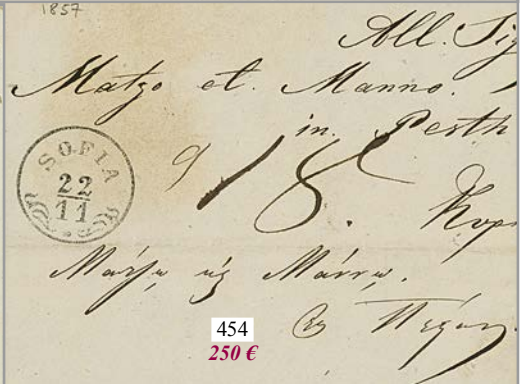 1857
All. Sig
Matzo et. Manno.
in. Pesth
SOFIA
22
11
18.
Κυρ
Μάτζω Μάννω.
454
250 €